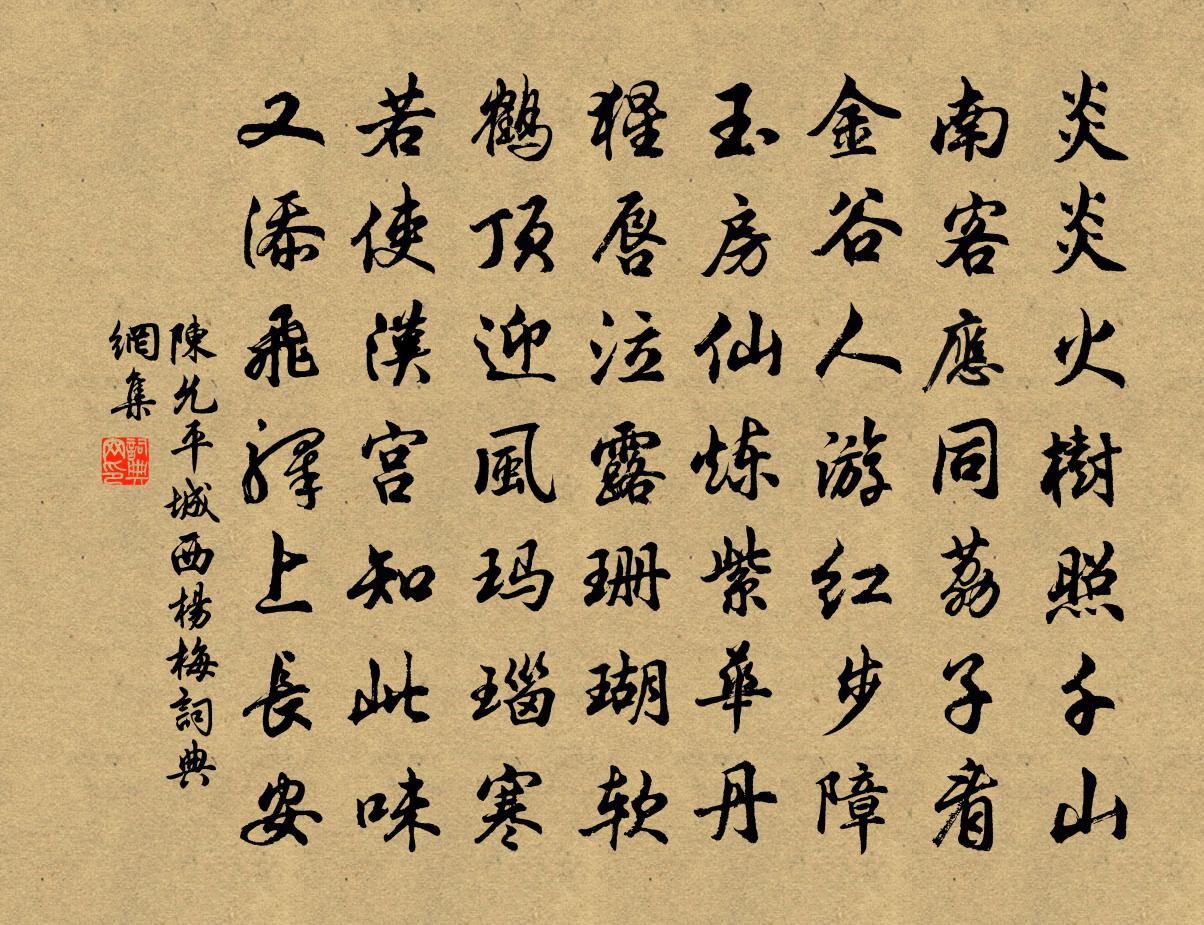 炎炎火樹照千山
南客應同荔子看
金谷人游红步障
玉房仙炼紫華丹
猩唇泣露珊瑚软
鶴顶迎風玛瑙寒
若使漢宮知此味
又添飛驛上長安
陳允平城西楊梅詞典
網集
詞典
网印